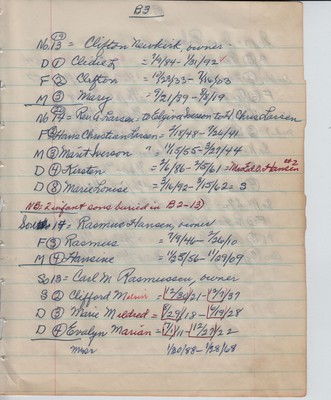 B3
(19)
No. 13 = Clifton Newkirk owner.
D (1) Cledie L = 7/4/84 - 1/31/92
F (2) Clifton = 10/23/33 -
M (3) Mary - 9/21/59 - 4/5/19
No. 14 = Rev. A. Larsen - to Elgin Iverson to H. Chris Larsen
F (2) Hans Christian Larsen = 7/15/48 - 7/26/41
M (3) Marit Iverson " 11/5/55 - 3/29/44
D (4) Kirsten = 2/6/86 - 3/5/61 = Mrs Ed. O. Hansen #2
D (8) Marie Louise = 3/16/92 - 3/15/62 = S
NB: 2 infant sons buried in B2-13)
So 14 = Rasmus Hansen, owner
F (3) Rasmus = 7/9/46 - 2/26/10
M (4) Hansine = 1/25/56 - 11/29/09
So 13 = Carl M Rasmussen, owner
S (2) Clifford Melvin = (12/30/21 - (12/7/37
D (3) Marie Mildred = (8/29/18 - (6/19/28
D (4) Evalyn Marian = (7/1/11 - (12/27/22
1/30/88 - 1/28/68